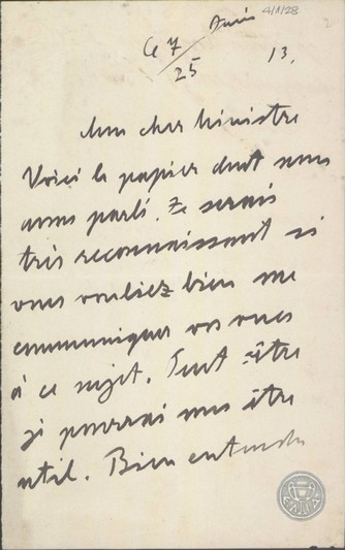 4/1/28
Ce 7/25 13.
Mon cher Ministre
Voici le papier dont nous
avons parlé. Je serais
très reconnaissant si
vous vouliez bien me
communiquer vos vues
à ce sujet. Peut être
je pourrai vous être
util. Bien entendu